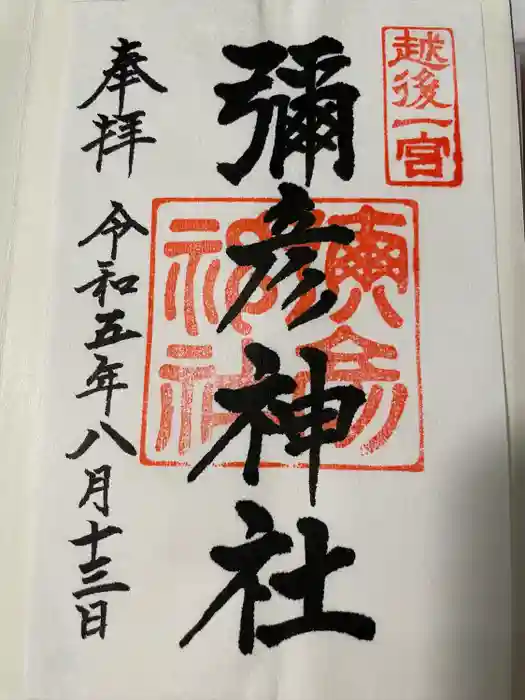 越後一宮
彌彦神社
奉拝 令和五年八月十三日